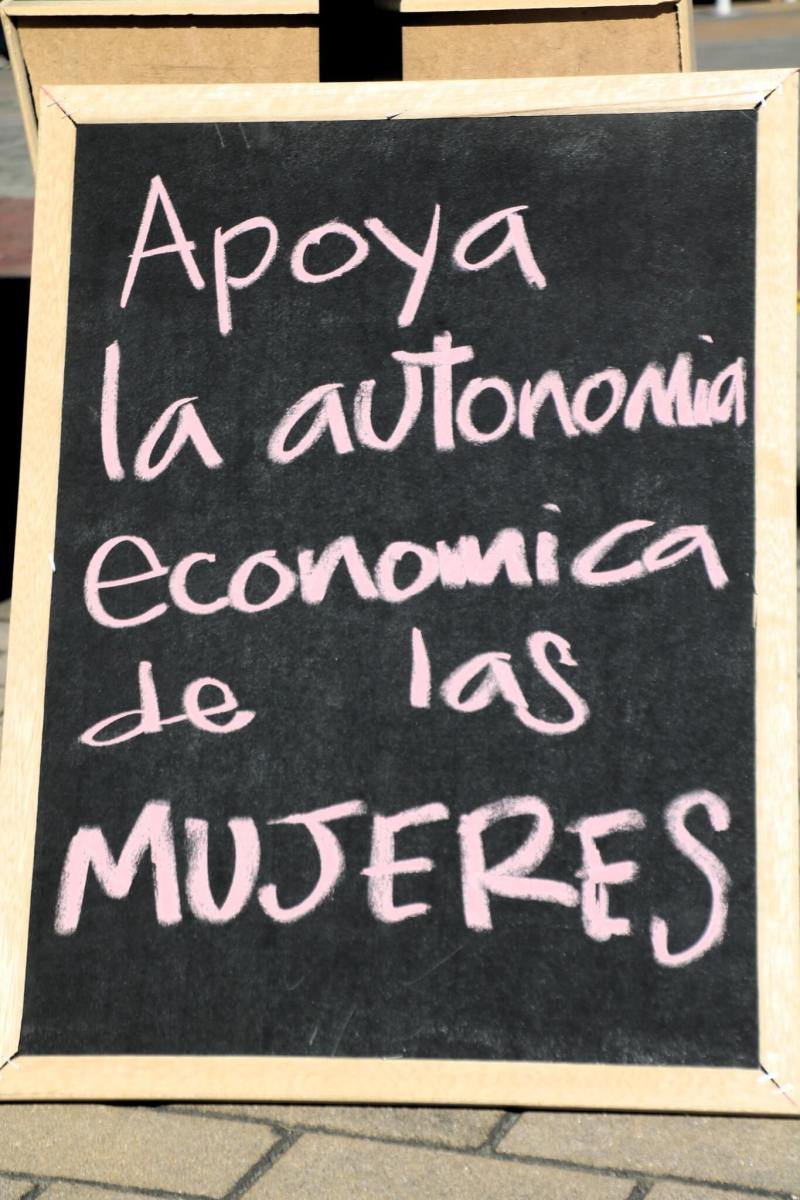 Apoya
la autonomia
economica
de las
MUJERES